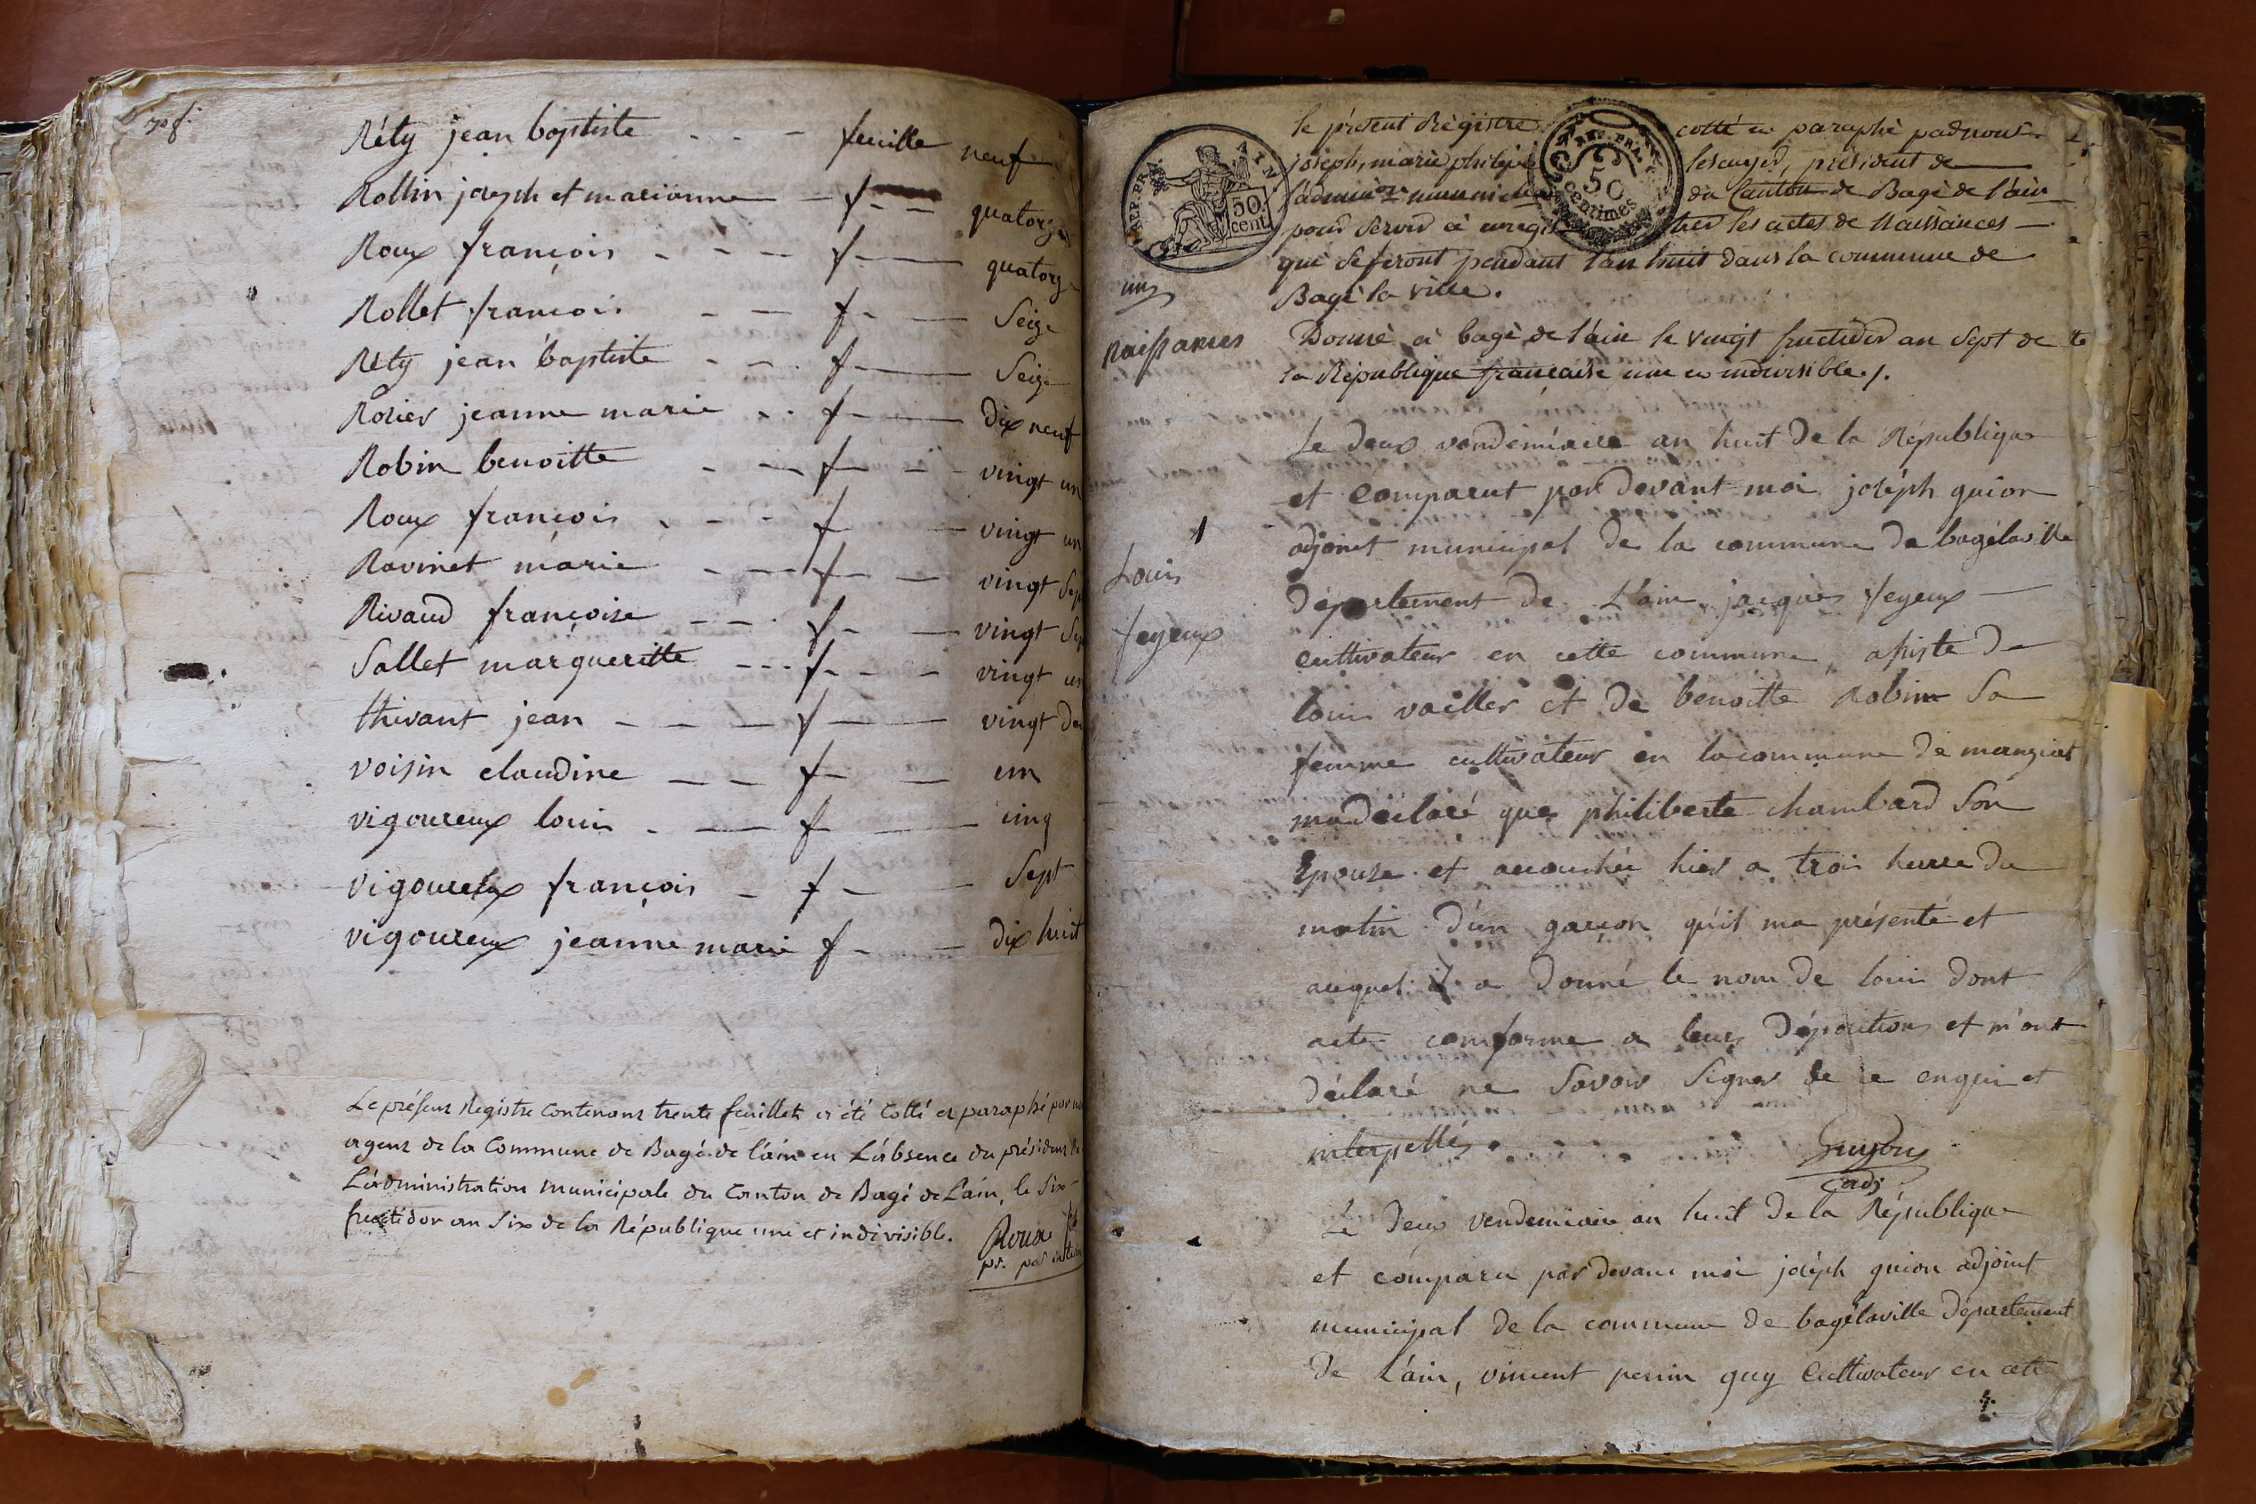 Réty jean baptiste - - - feuille neuf
Rollin joseph et marianne - f - - quatorze
Roux françois - - - - f - quatorze
Rollet françois - - f - - Seize
Réty jean baptiste - - - f - Seize
Rozier jeanne marie - - f - - dix neuf
Robin benoitte - - - f - - vingt un
Roux françois - - - f - vingt un
Ravinet marie - - - f - - vingt Sept
Rivaud françoise - - - f - - vingt Sep
Sallet margueritte - - - f - - vingt un
thivant jean - - - f - vingt deu
voisin claudine - - f - - un
vigoureux louis - - f - cinq
vigoureux françois - f - - Sept
vigoureux jeanne marie f - - dix huit
Le présent Registre Contenant trente feuillets a été Cotté et paraphé par n
agent de la Commune de Bagé de l'ain en L'absence du président de
L'administration municipale du Canton de Bagé de L'ain, le Six
fructidor an Six de la République une et indivisible.
Roux
pr. par
REP. FRA. AIN
50 cent.
REP. FRA.
50 centimes
le présent Régistre cotté et paraphé par nous
joseph, marie philip président de
l'admin municip du Canton de Bagé de l'ain
pour Servir à enregis trer les actes de Naissances
qui Se feront pendant l'an huit dans la commune de
un
Bagé la ville.
Naissances
Donné à bagé de l'ain le vingt fructidor an Sept de
la République française une et indivisible.
Le deux vendémiaire an huit de la République
et Comparut par devant moi joseph guion
1
adjoint municipal de la commune de bagélaville
Louis
département de L'ain jacques feyeux
feyeux
cultivateur en cette commune assisté de
louis vailler et de benoitte Robin Sa
femme cultivateur en la commune de manziat
ma déclaré que philiberte chambard Son
Epouse et accouchée hier a trois heure du
matin d'un garçon qu'il ma présenté et
auquel il a donné le nom de louis dont
acte conforme a leur déposition et m'ont
déclaré ne Savoir Signer de ce enquis et
interpellés.
Guyon
adj
Le deux vendemiaire an huit de la République
et comparu par devant moi joseph guion adjoint
municipal de la commune de bagélaville département
de L'ain, vincent perrin guy Cultivateur en cette